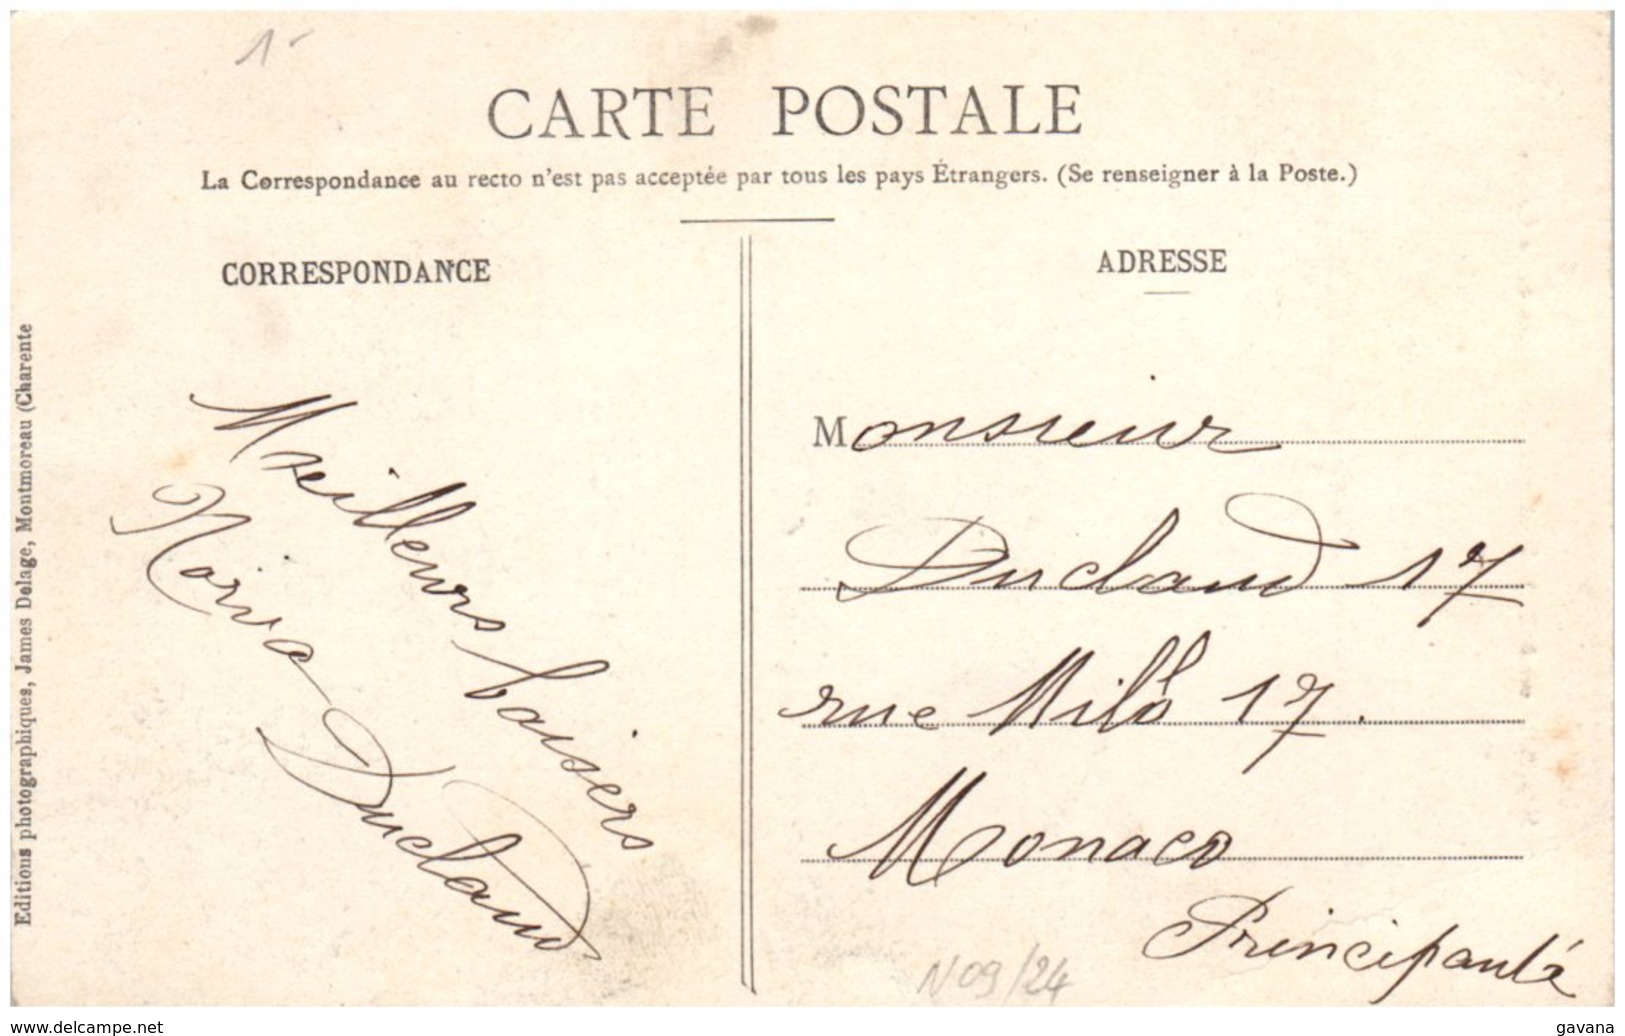 1-
CARTE POSTALE
La Correspondance au recto n'est pas acceptée par tous les pays Étrangers. (Se renseigner à la Poste.)
CORRESPONDANCE
Meilleurs baisers
Duclaud
Editions photographiques, James Delage, Montmoreau (Charente
ADRESSE
Monsieur
Duclaud 17
rue Milo 17.
Monaco
Principauté
N09/24
www.delcampe.net
gavana